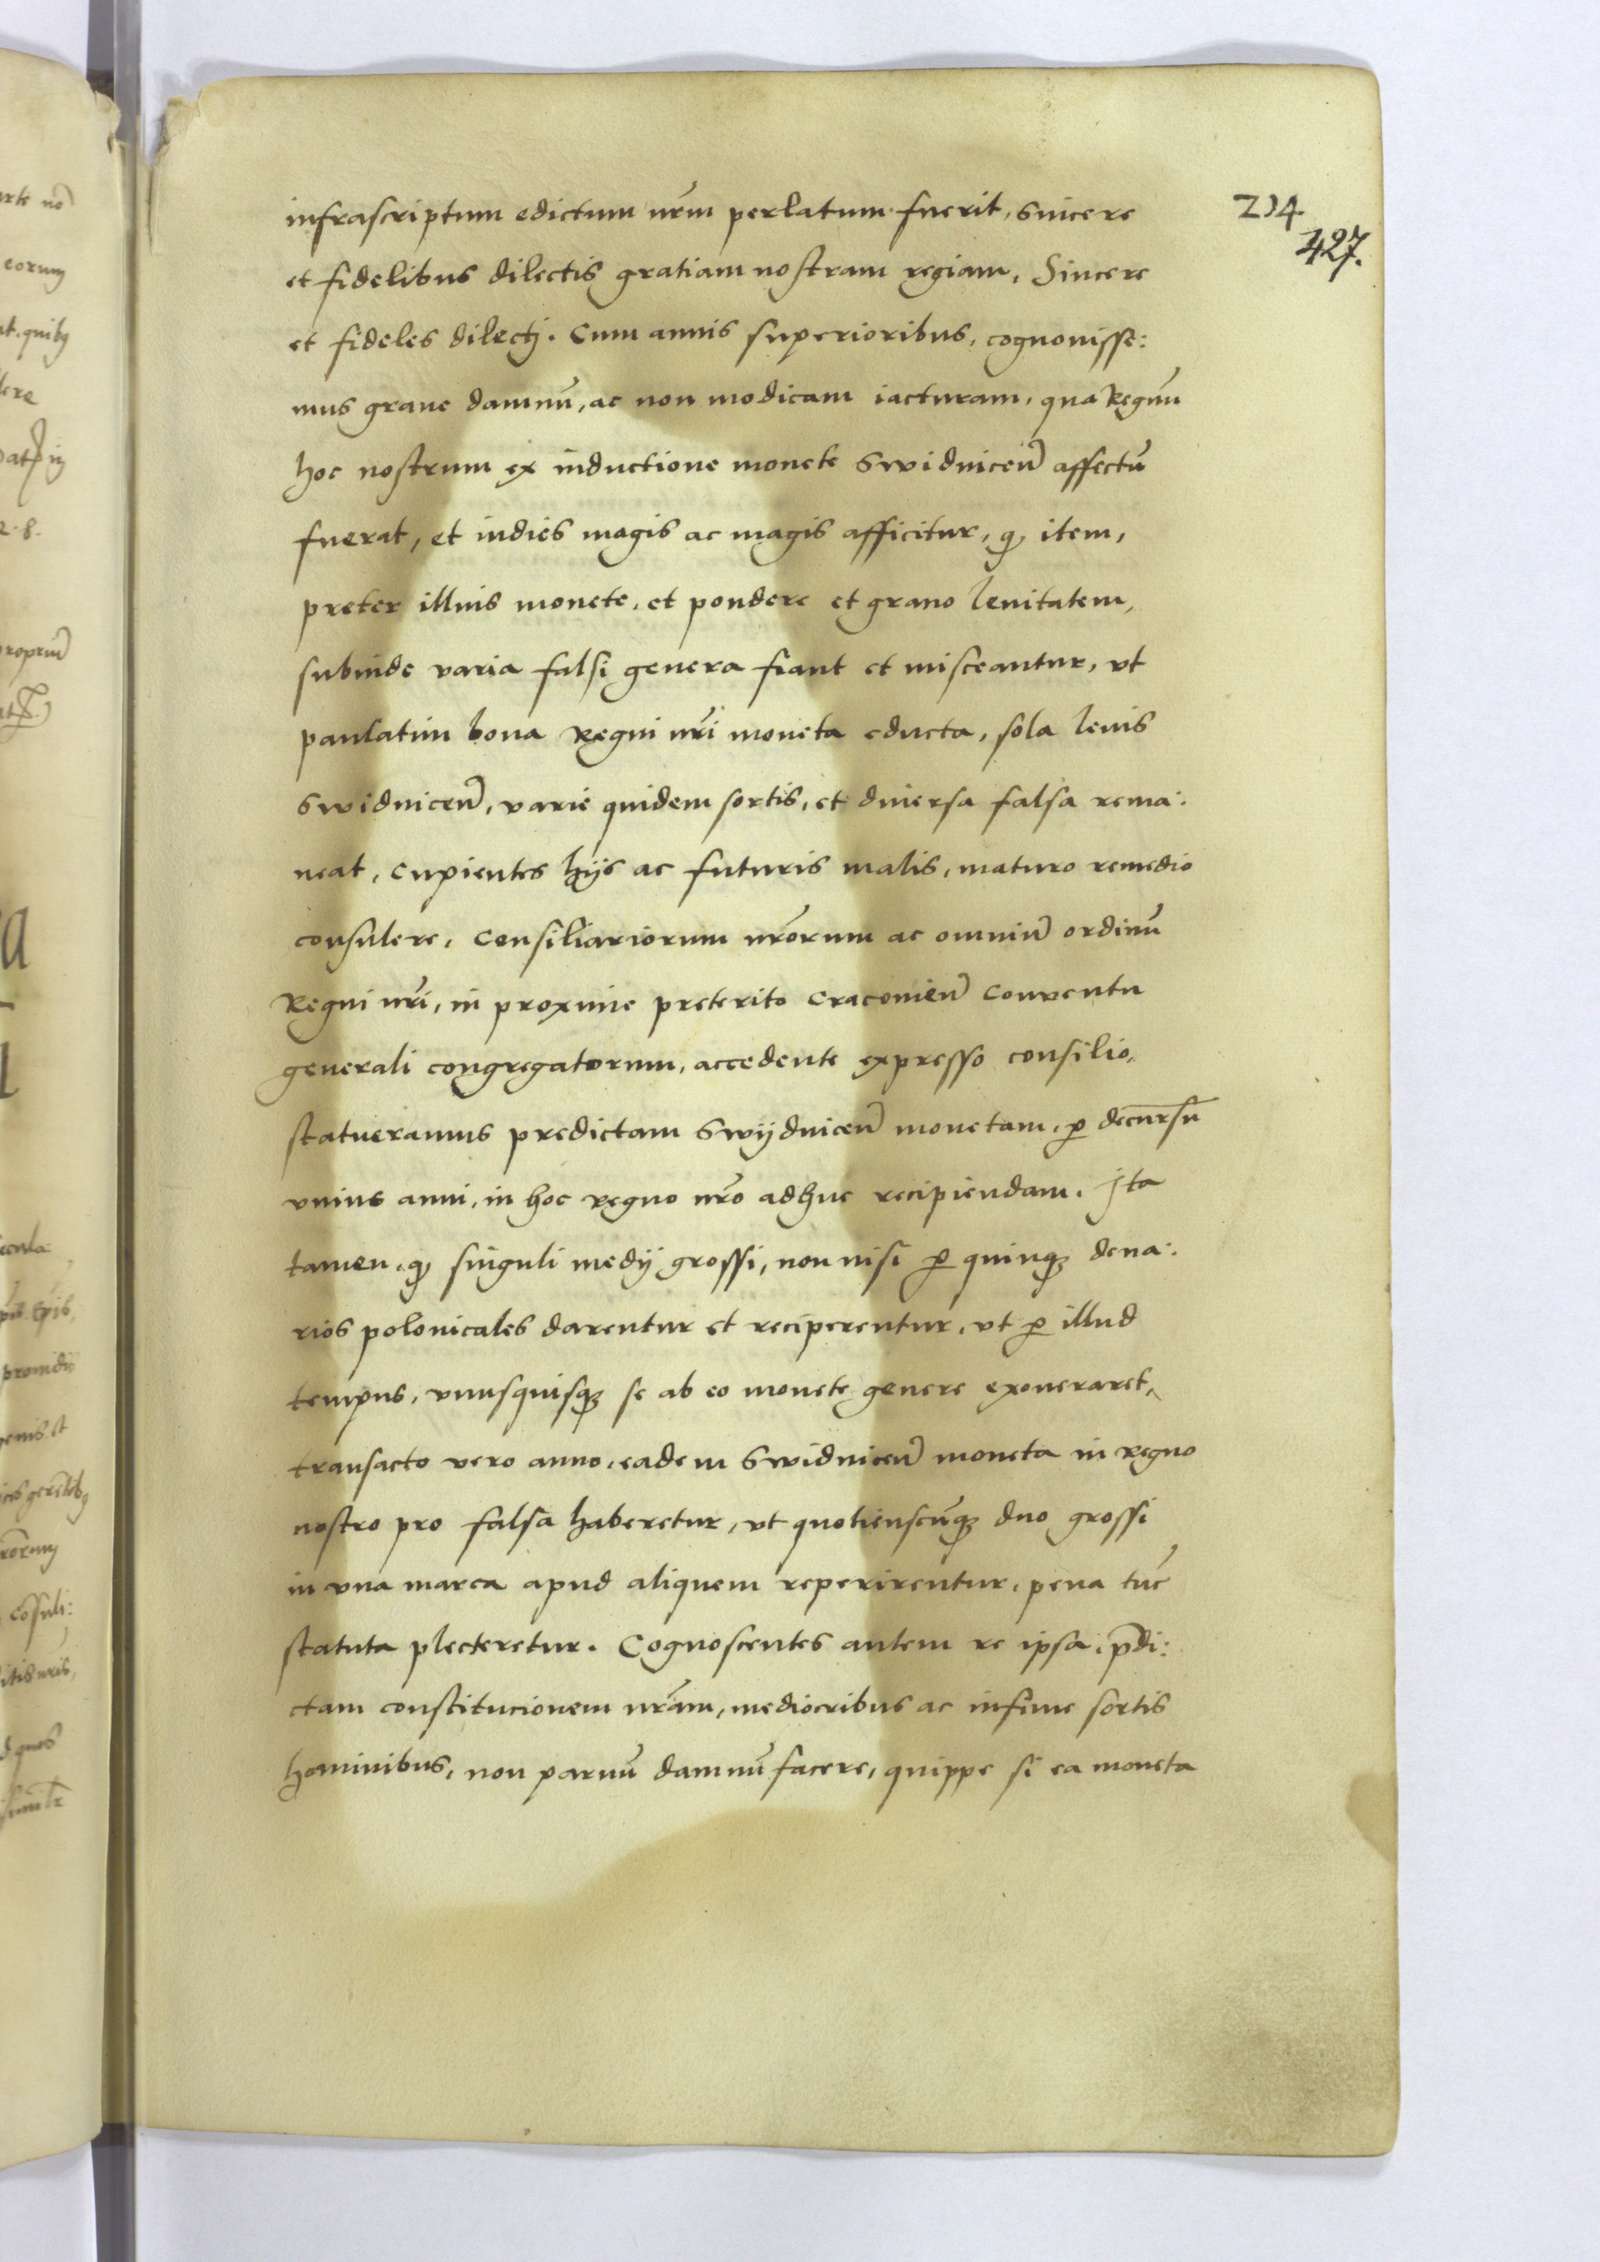 234.
427.
infrascriptum edictum nr̃m perlatum fuerit, sincere
et fidelibus dilectis gratiam nostram regiam. Sincere
et fideles dilectj. Cum annis superioribus, cognouisse:
mus graue damnũ, ac non modicam iacturam, qua Regnũ
hoc nostrum ex inductione monete Swidniceñ affectũ
fuerat, et indies magis ac magis afficitur, ꝙ item,
preter illius monete, et pondere et grano leuitatem,
subinde varia falsi genera fiant et misceantur, vt
paulatim bona Regni nr̃i moneta educta, sola leuis
Swidniceñ, varie quidem sortis, et diuersa falsa rema:
neat, Cupientes hijs ac futuris malis, maturo remedio
consulere, Consiliariorum nr̃orum ac omniũ ordinũ
Regni nr̃i, in proxime preterito Cracouieñ Conventu
generali congregatorum, accedente expresso consilio,
statueramus predictam Swijdniceñ monetam, ꝑ decursũ
vnius anni, in hoc Regno nr̃o adhuc recipiendam. Ita
tamen, ꝙ singuli medij grossi, non nisi ꝑ quinqꝫ dena:
rios polonicales darentur et reciperentur, vt ꝑ illud
tempus, vnusquisqꝫ se ab eo monete genere exoneraret,
transacto vero anno, eadem Swidniceñ moneta in Regno
nostro pro falsa haberetur, vt quotienscũqꝫ duo grossi
in vna marca apud aliquem reperirentur, pena tũc
statuta plecteretur. Cognoscentes autem re ipsa, p̃di:
ctam constitucionem nr̃am, mediocribus ac infime sortis
hominibus, non paruũ damnũ facere, quippe si ea moneta